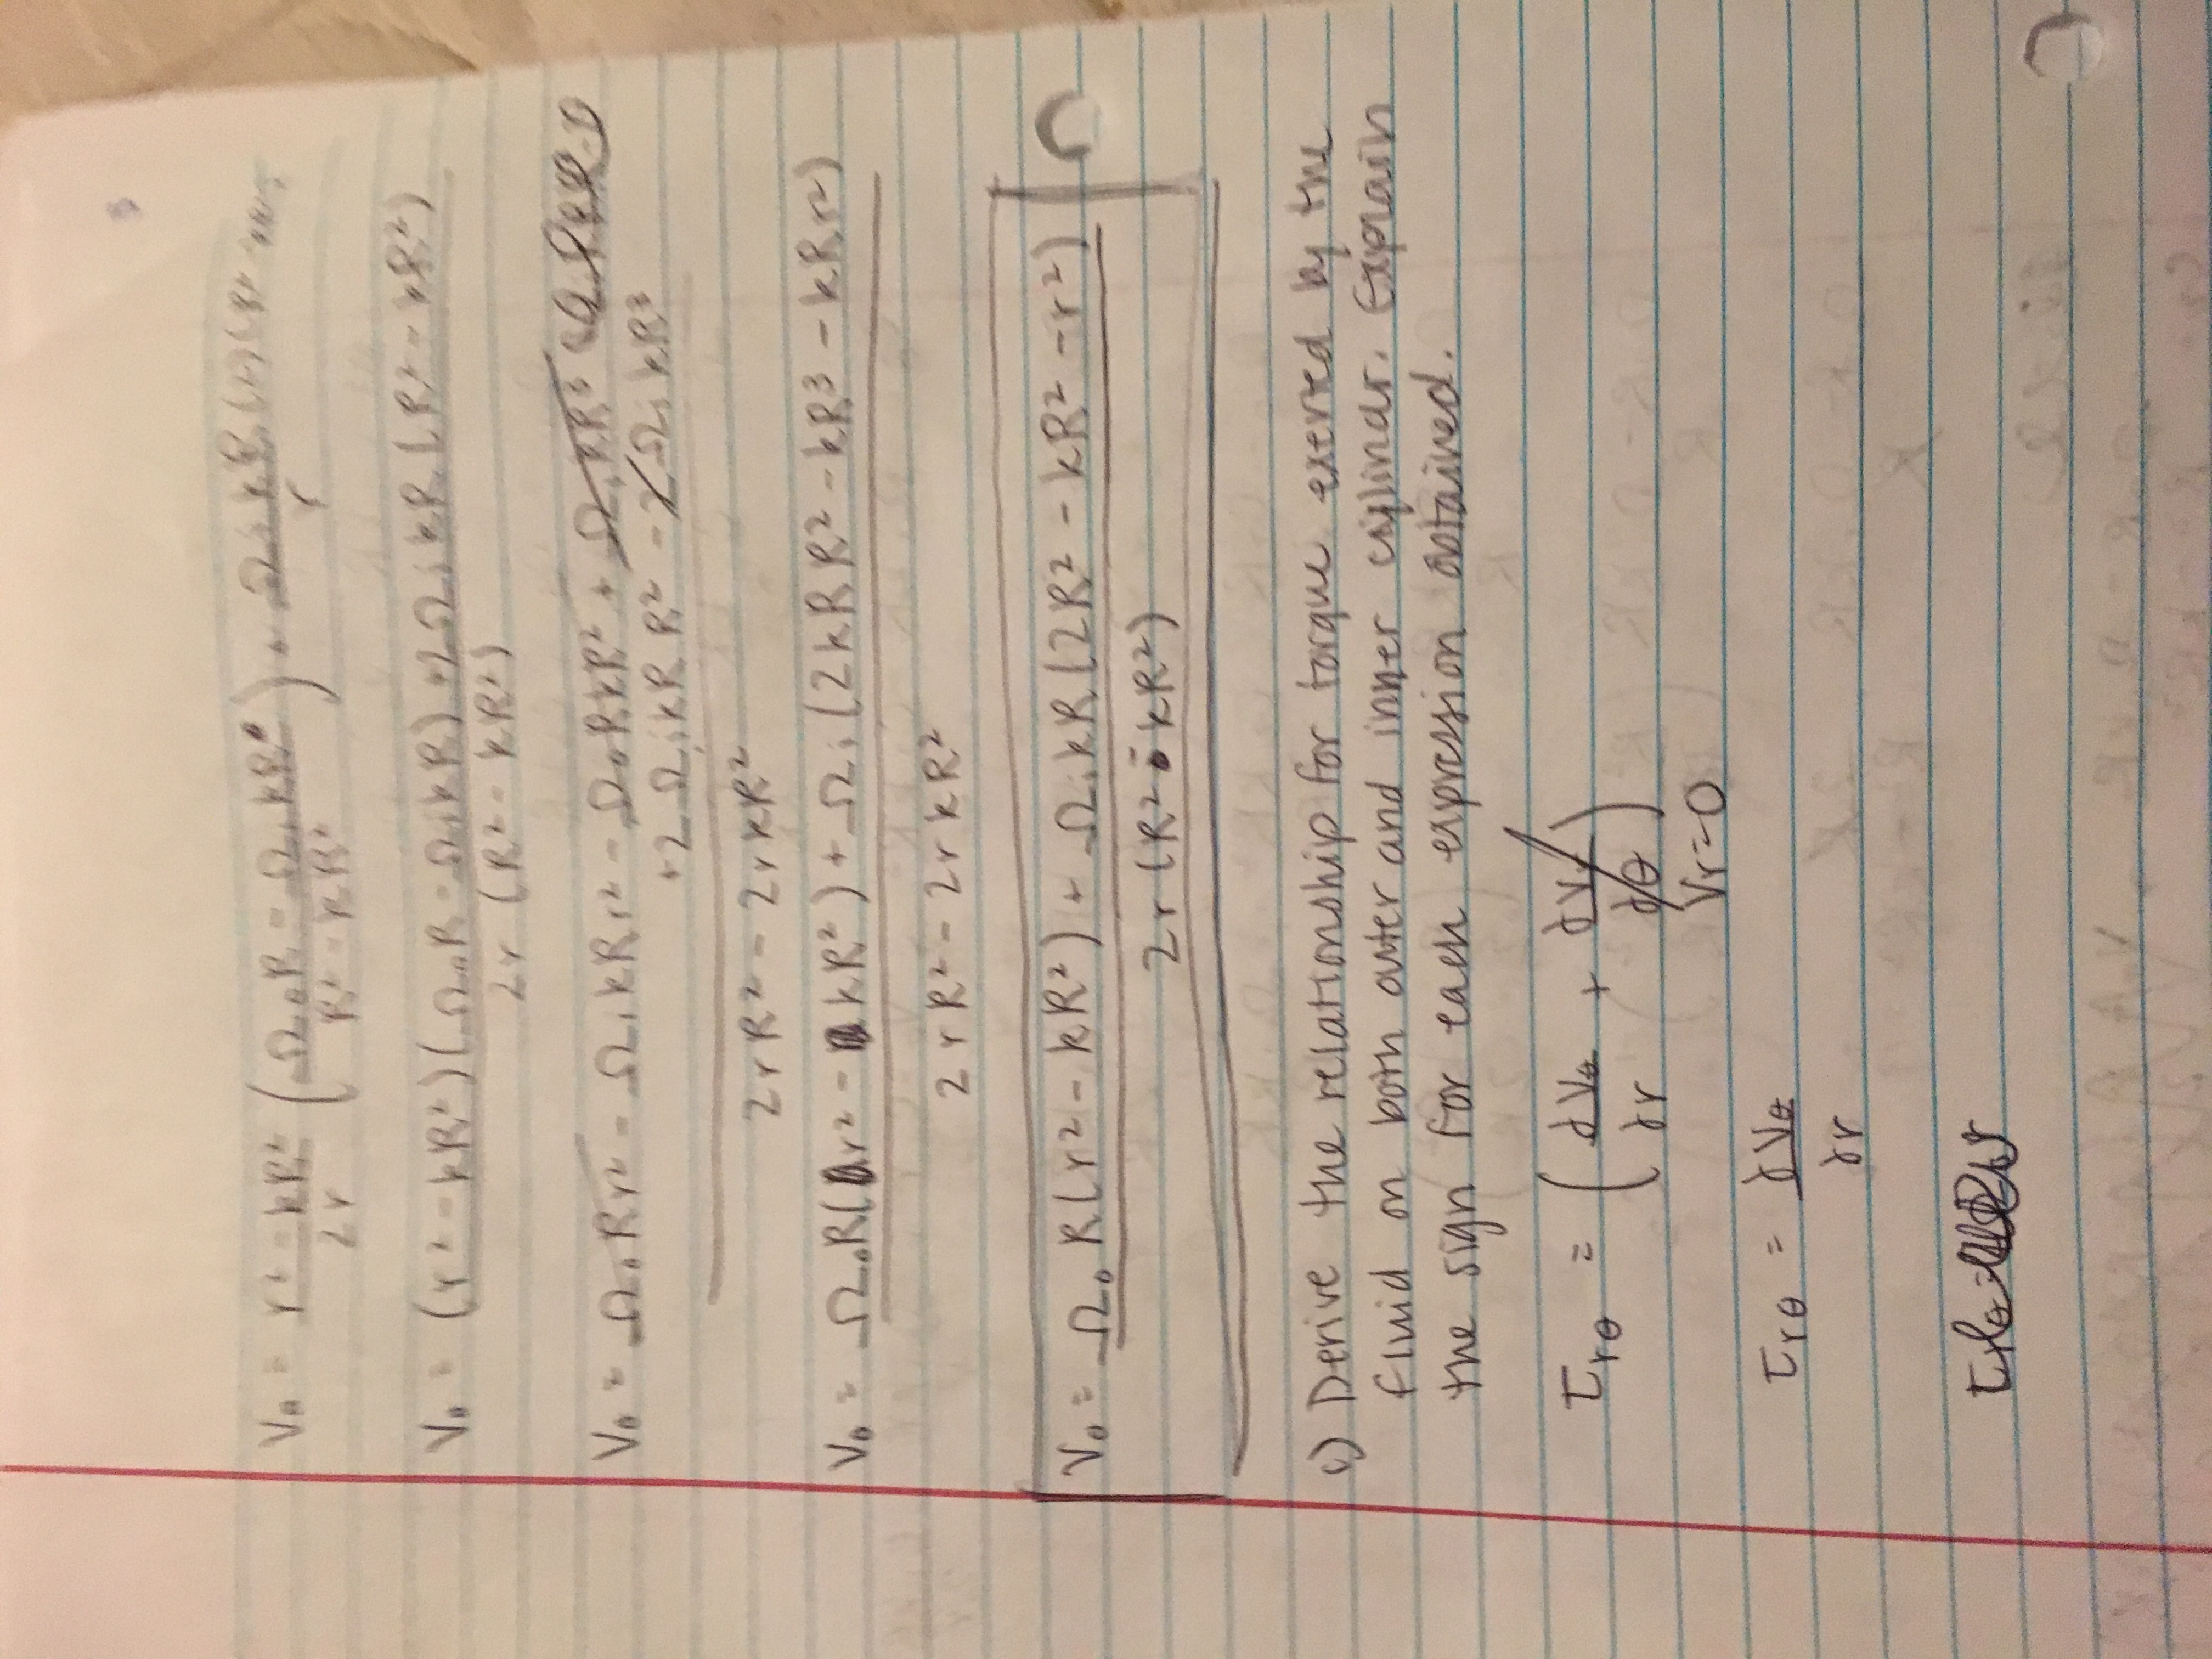 V_θ = r² - kR² / 2r ( Ω_oR - Ω_i kR / R² - kR² ) + Ω_i kR / r
V_θ = (r² - kR²)(Ω_oR - Ω_i kR) + 2Ω_i kR (R² - kR²) / 2r (R² - kR²)
V_θ = Ω_oRr² - Ω_i kRr² - Ω_oRkR² + Ω_i kR³
+2Ω_i kR R² - 2Ω_i kR³
2rR² - 2rkR²
V_θ = Ω_oR(r² - kR²) + Ω_i (2kRR² - kR³ - kRr²)
2rR² - 2rkR²
V_θ = Ω_o R(r² - kR²) + Ω_i kR(2R² - kR² - r²)
2r (R² - kR²)
c) Derive the relationship for torque exerted by the
fluid on both outer and inner cylindr. Explain
the sign for each expression obtained.
τ_rθ = ( ∂V_θ / ∂r + ∂V_r / ∂θ )
Vr=0
τ_rθ = ∂V_θ / ∂r